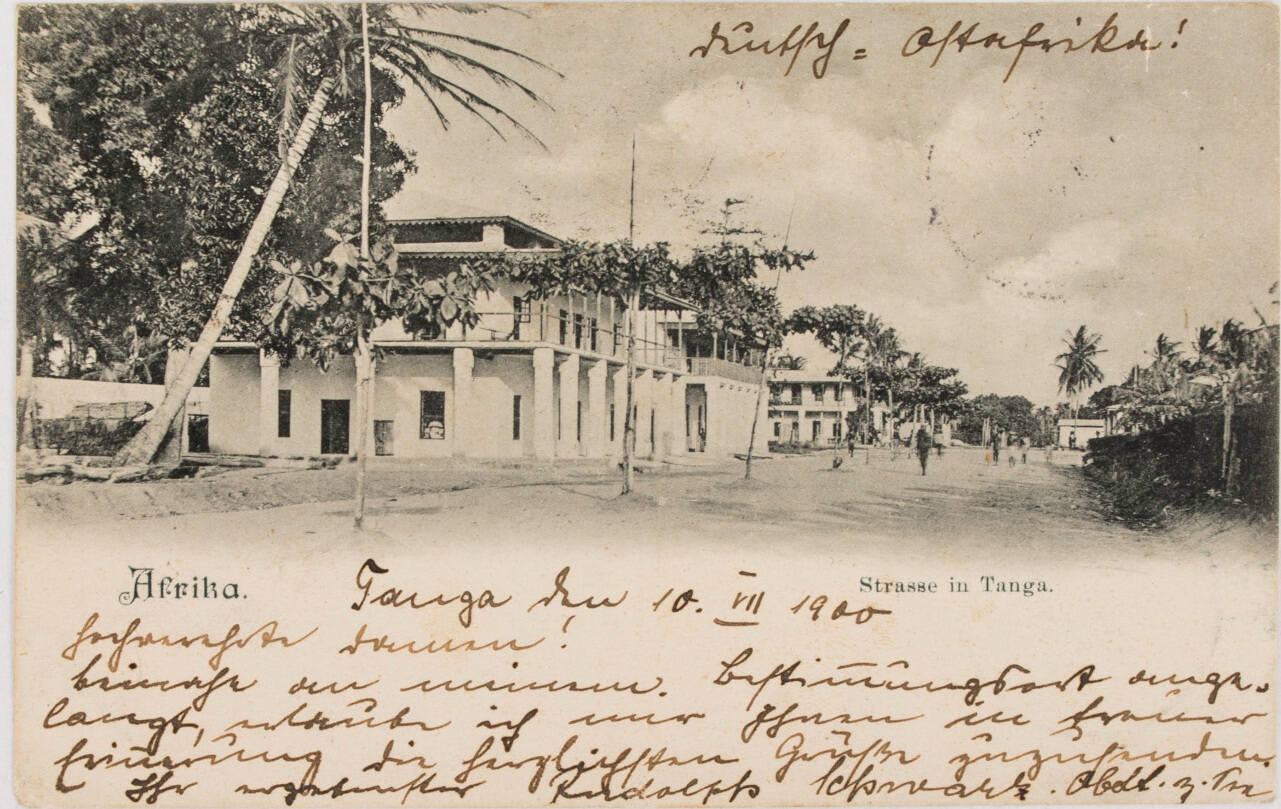 Deutsch = Ostafrika!
Afrika.
Strasse in Tanga.
Tanga den 10. VII 1900
Hochverehrte Damen!
beinahe an meinem Bestimmungsort ange-
langt, erlaube ich mir Ihnen in treuer
Erinnerung die herzlichsten Grüße zuzusenden.
Ihr ergebenster Rudolph Schwarz. Obdt. z.